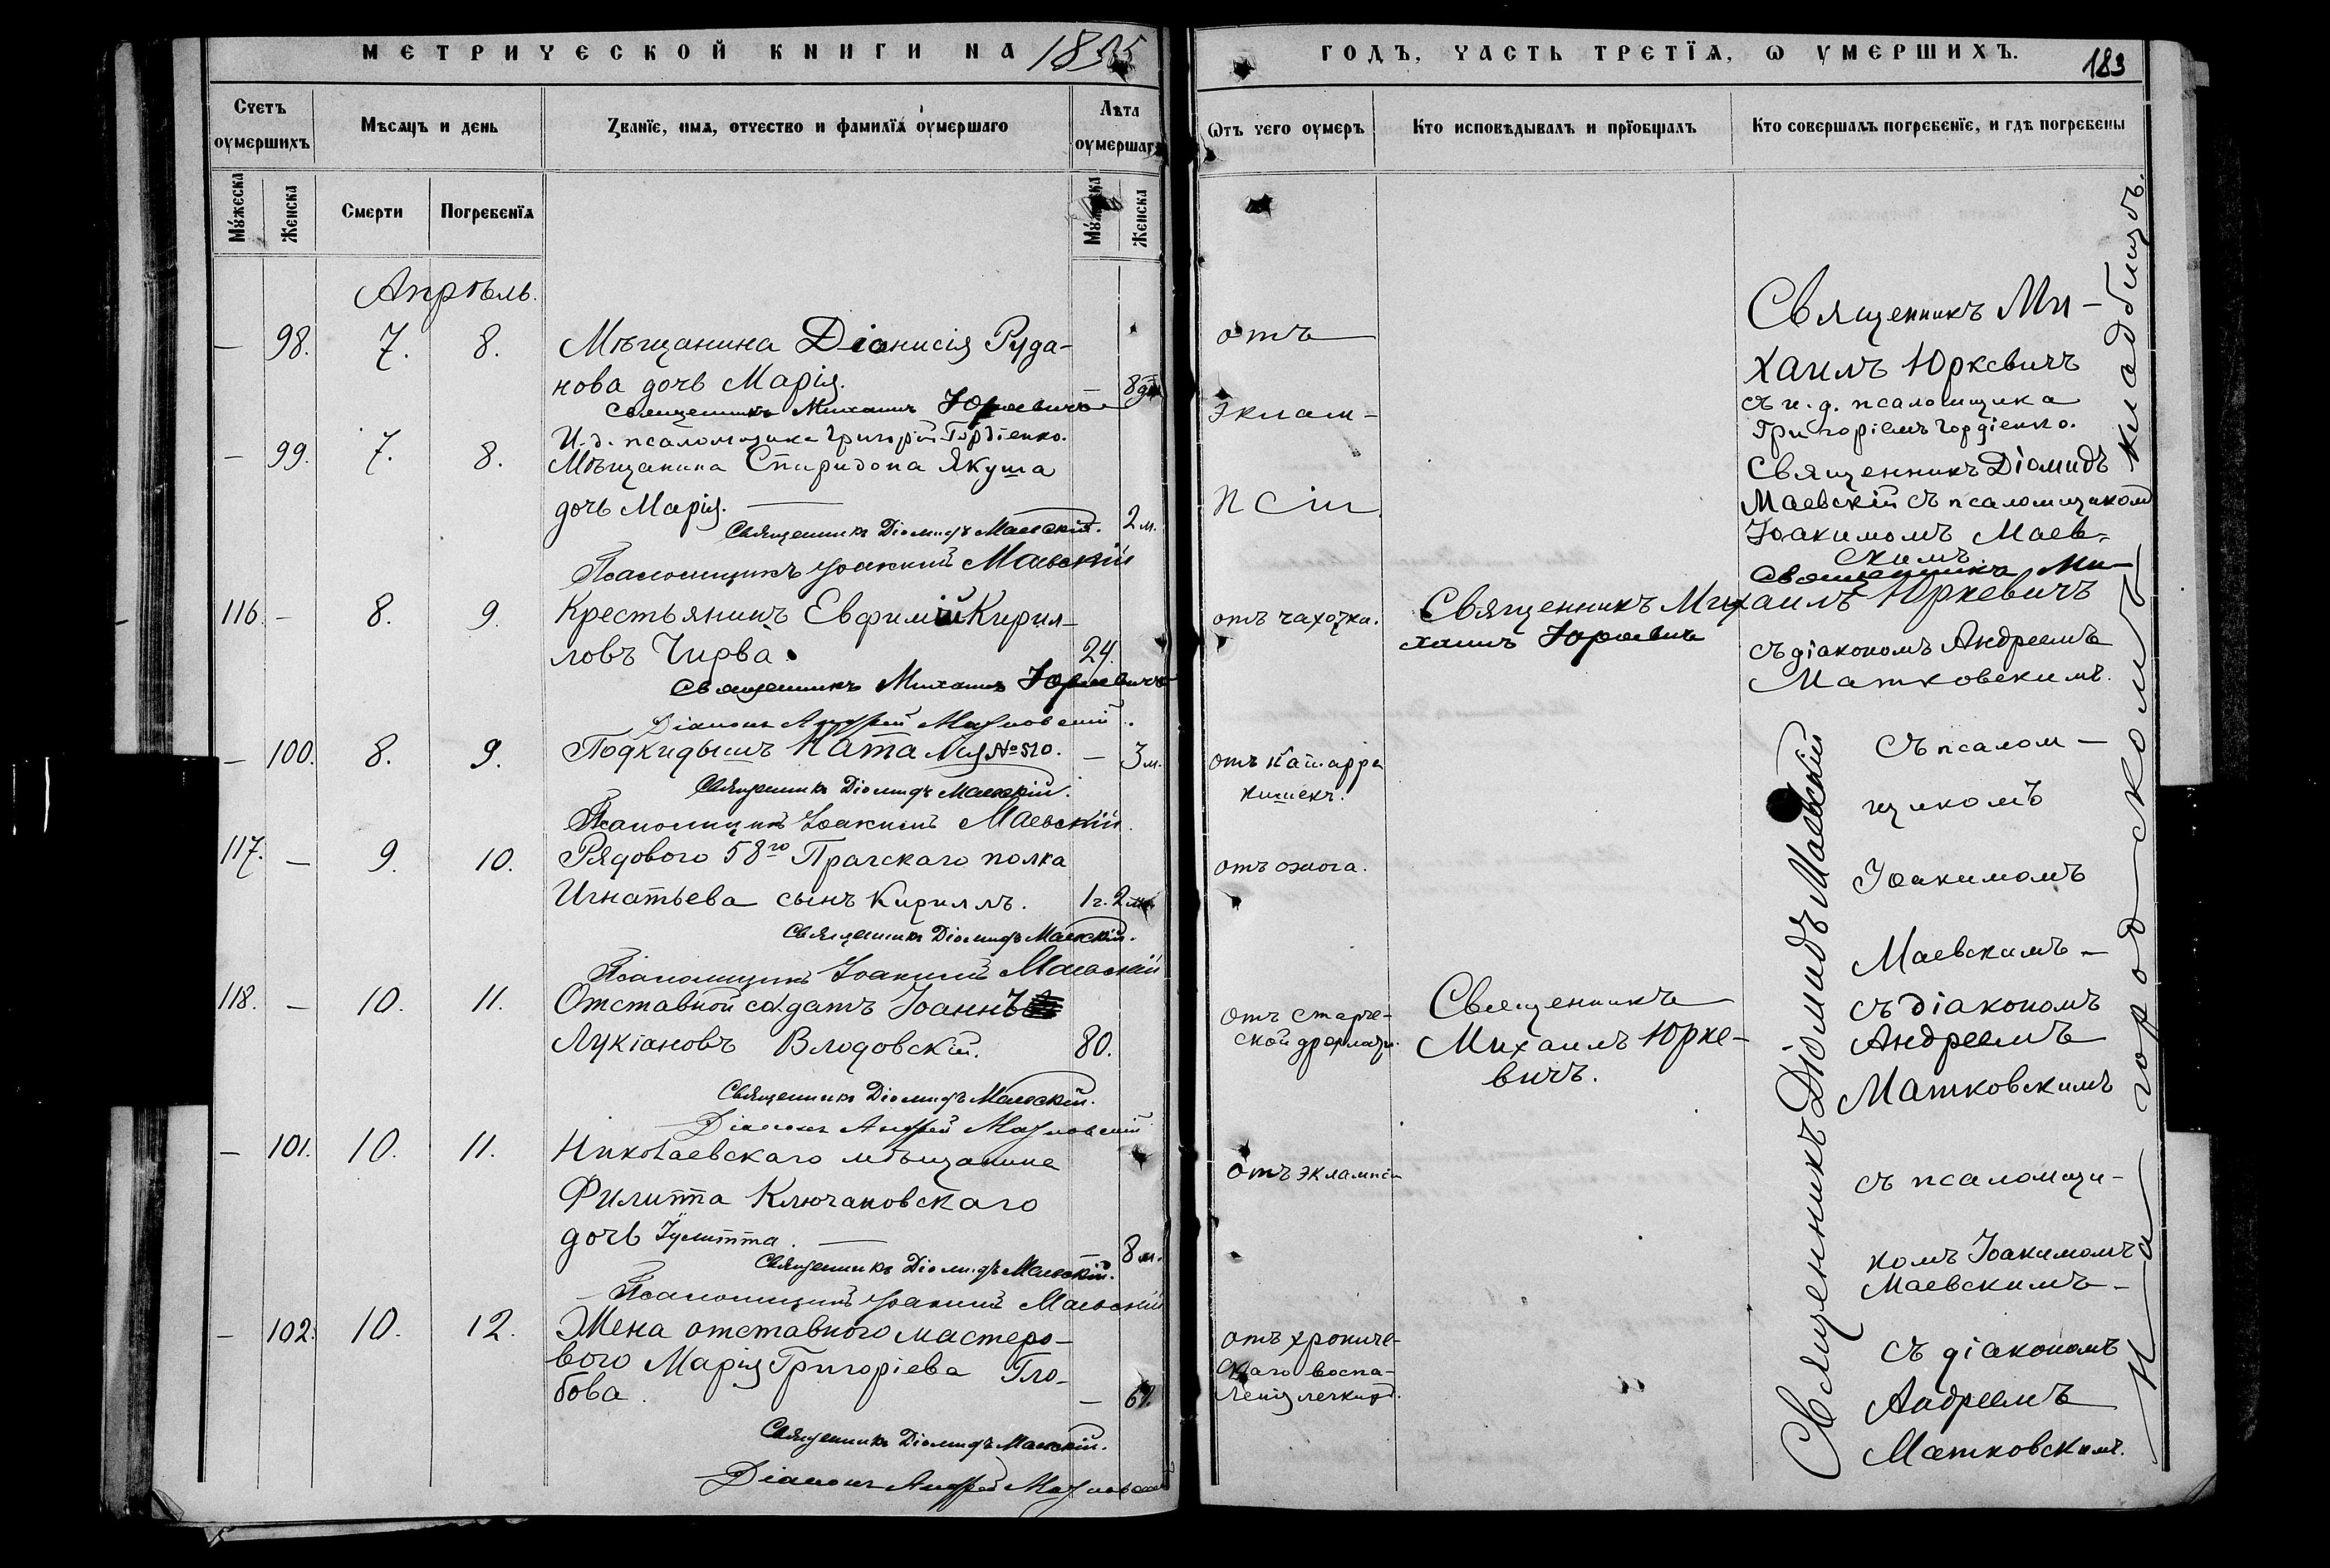 МЕТРИЧЕСКОЙ КНИГИ НА 1885
ГОДЪ, ЧАСТЬ ТРЕТЇѦ, Ѡ УМЕРШИХЪ.
183
Счетъ оумершихъ
Мѣсѧцъ и день
Званїе, имѧ, отчество и фамилїѧ оумершаго
Лѣта оумершаго
Ѡтъ чего оумеръ
Кто исповѣдывалъ и прїобщалъ
Кто совершалъ погребенїе, и гдѣ погребены
Мужеска
Женска
Смерти
Погребенїѧ
Мужеска
Женска
Апрѣль.
— 98. 7. 8.
Мѣщанина Діонисія Руда-
нова дочь Марія. — 8 дн.
Священникъ Михаилъ Юркевичъ
И. д. псаломщика Григорій Гордіенко.
отъ
Священникъ Ми-
хаилъ Юркевичъ
съ и. д. псаломщика
Григоріемъ Гордіенко.
— 99. 7. 8.
Мѣщанина Спиридона Якуша
дочь Марія. 2 м.
Священникъ Діомидъ Маевскій.
Псаломщикъ Іоакимъ Маевскій
эклам-
псіи.
Священникъ Діомидъ
Маевскій съ псаломщикомъ
Іоакимомъ Маев-
скимъ
116. — 8. 9.
Крестьянинъ Евфимій Кирил-
ловъ Чирва. 24.
Священникъ Михаилъ Юркевичъ
Діаконъ Андрей Матковскій.
отъ чахотки.
Священникъ Ми-
хаилъ Юркевичъ
Священникъ Ми-
хаилъ Юркевичъ
съ діакономъ Андреемъ
Матковскимъ.
— 100. 8. 9.
Подкидышъ Наталія № 510. — 3 м.
Священникъ Діомидъ Маевскій.
Псаломщикъ Іоакимъ Маевскій.
отъ катарра
кишекъ.
съ псалом-
щикомъ
Іоакимомъ
Маевскимъ —
117. — 9. 10.
Рядового 58го Прагскаго полка
Игнатьева сынъ Кириллъ. 1 г. 2 м.
Священникъ Діомидъ Маевскій.
Псаломщикъ Іоакимъ Маевскій
отъ ожога.
118. — 10. 11.
Отставной солдатъ Іоаннъ
Лукіановъ Влодовскій. 80.
Священникъ Діомидъ Маевскій.
Діаконъ Андрей Матковскій
отъ старче-
ской дряхлости.
Священникъ
Михаилъ Юрке-
вичъ.
съ діакономъ
Андреемъ
Матковскимъ
— 101. 10. 11.
Николаевскаго мѣщанина
Филиппа Ключановскаго
дочь Іулитта. — 8 м.
Священникъ Діомидъ Маевскій.
Псаломщикъ Іоакимъ Маевскій
отъ эклампсіи
съ псаломщи-
комъ Іоакимомъ
Маевскимъ —
— 102. 10. 12.
Жена отставного мастеро-
вого Марія Григоріева Гло-
бова. — 67.
Священникъ Діомидъ Маевскій.
Діаконъ Андрей Матковскій
отъ хрониче-
скаго воспа-
ленія легкихъ.
съ діакономъ
Андреемъ
Матковскимъ.
Священникъ Діомидъ Маевскій
На городскомъ кладбищѣ.